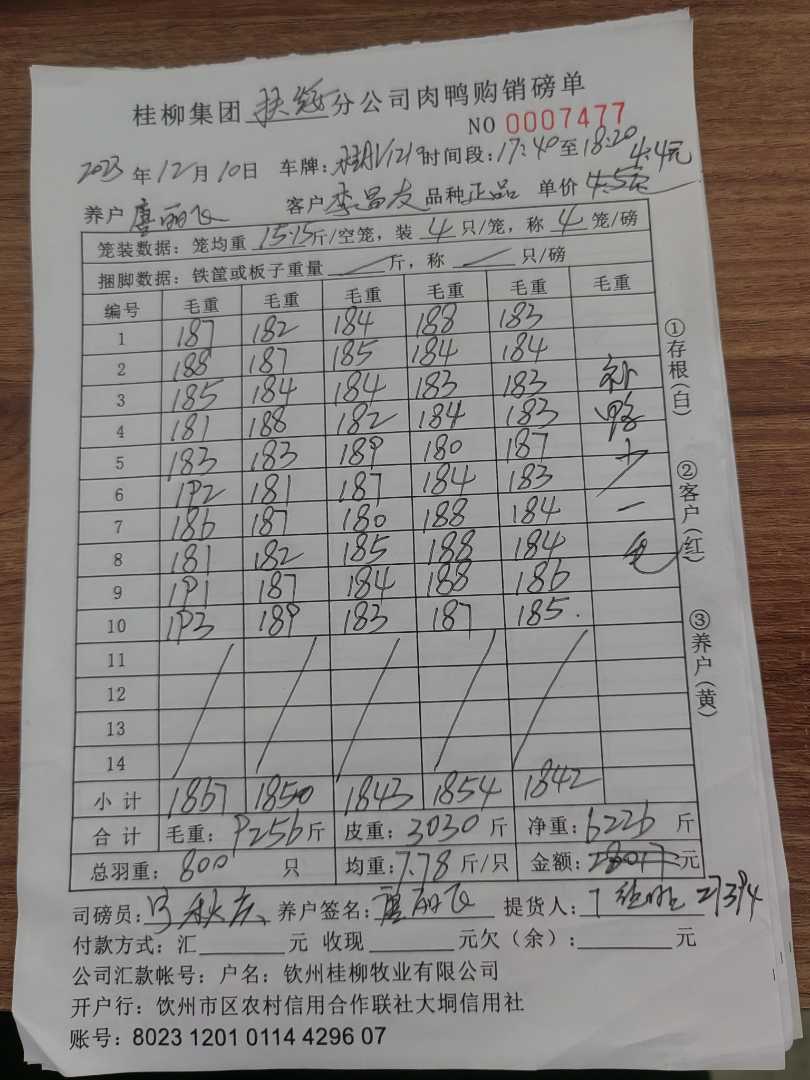 桂柳集团 扶冠 分公司肉鸭购销磅单
NO 0007477
2023年12月10日 车牌: 时间段:17:40至18:20
4.4元
养户 唐丽飞 客户 李昌友 品种 正品 单价 4.5
笼装数据:笼均重 15.15 斤/空笼,装 4 只/笼,称 4 笼/磅
捆脚数据:铁筐或板子重量 斤,称 只/磅
编号 毛重 毛重 毛重 毛重 毛重 毛重
1 187 182 184 188 183
2 188 187 185 184 184
3 185 184 184 183 183 补
4 181 188 182 184 183 鸭
5 183 183 189 180 187 十
6 192 181 187 184 183
7 186 187 180 188 184 一
8 181 182 185 188 184
9 191 187 184 188 186
10 193 189 183 187 185
11
12
13
14
小计 1867 1850 1843 1854 1842
合计 毛重:9256斤 皮重:3030斤 净重:6226斤
总羽重:800只 均重:7.78斤/只 金额:28017元
司磅员: 养户签名:唐丽飞 提货人: 27394
付款方式:汇 元 收现 元欠(余): 元
公司汇款帐号:户名:钦州桂柳牧业有限公司
开户行:钦州市区农村信用合作联社大垌信用社
账号:8023 1201 0114 4296 07
①存根(白)
②客户(红)
③养户(黄)